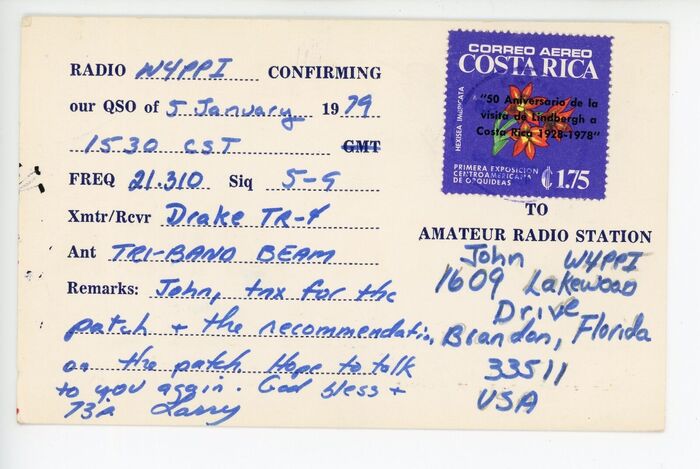 RADIO W4PPI CONFIRMING
our QSO of 5 January 1979
1530 CST GMT
FREQ 21.310 Siq 5-9
Xmtr/Rcvr Drake TR-4
Ant TRI-BAND BEAM
Remarks: John, tnx for the
patch + the recommendation
on the patch. Hope to talk
to you again. God bless +
73s Larry
CORREO AEREO
COSTA RICA
"50 Aniversario de la
visita de Lindbergh a
Costa Rica 1928-1978"
HEXISEA IMBRICATA
PRIMERA EXPOSICION
CENTROAMERICANA
DE ORQUIDEAS
₡1.75
TO
AMATEUR RADIO STATION
John W4PPI
1609 Lakewood
Drive
Brandon, Florida
33511
USA